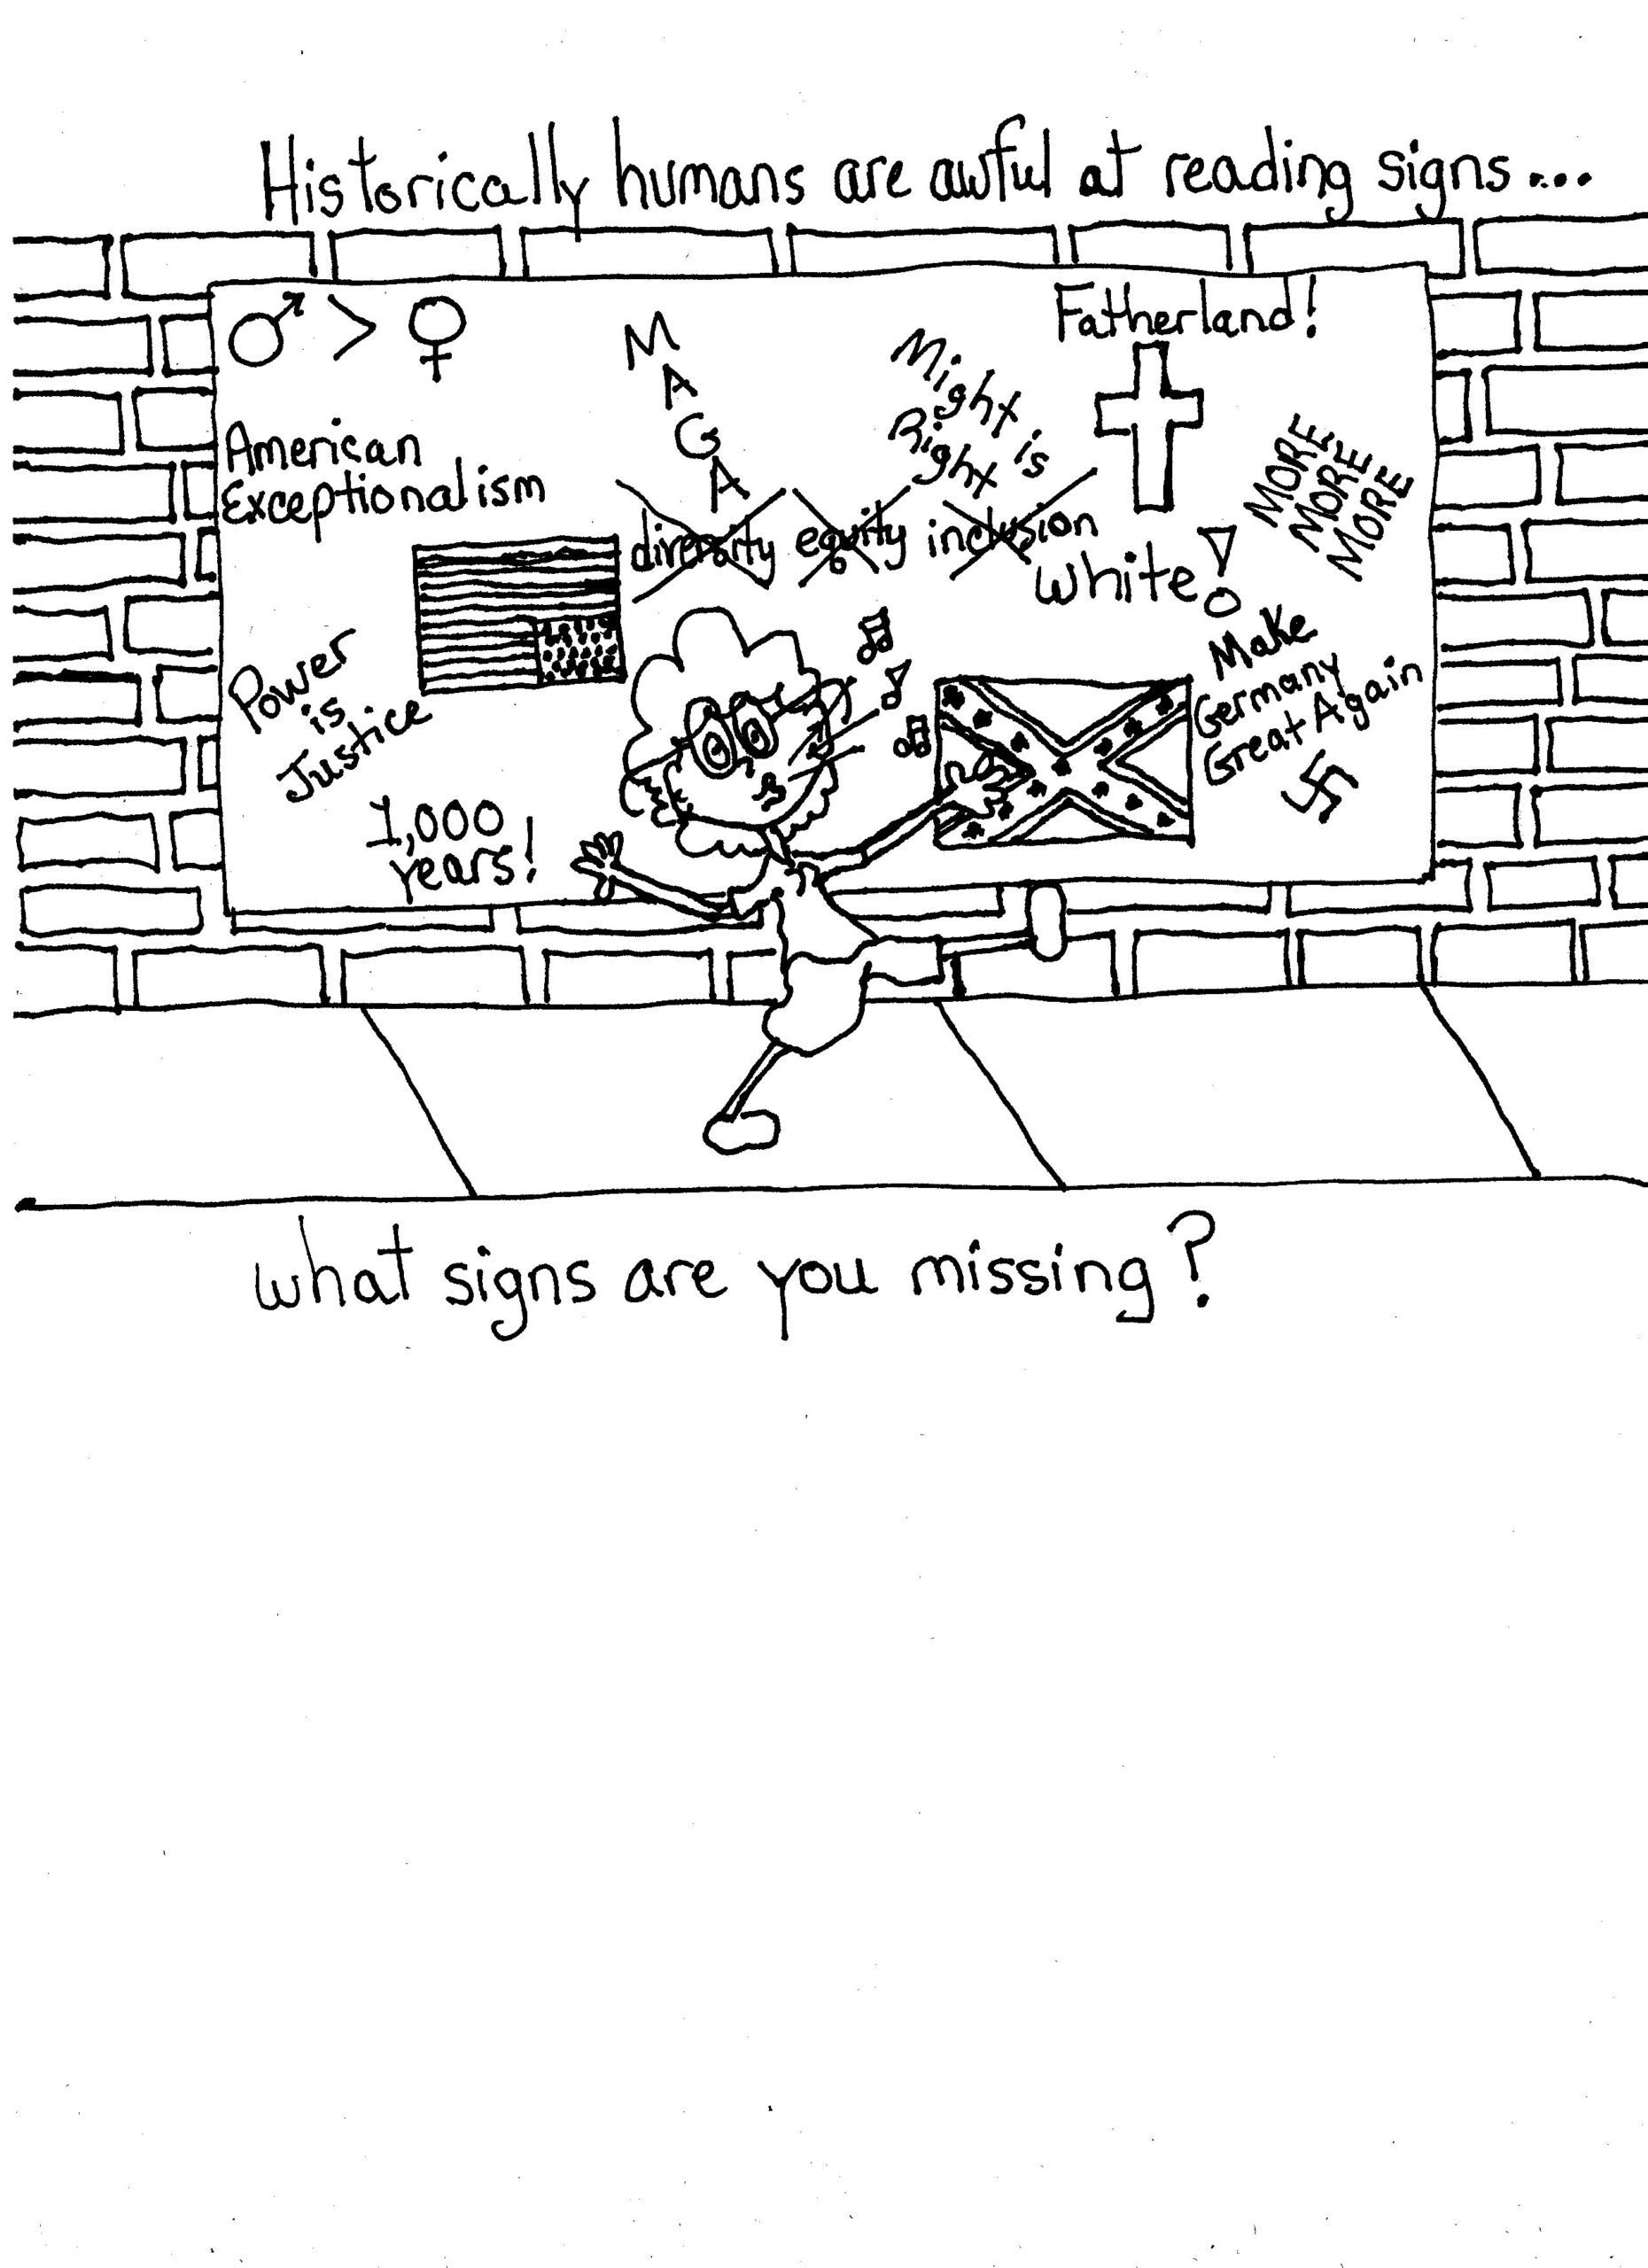 Historically humans are awful at reading signs...
♂ > ♀
MAGA
Might is
Right
Fatherland!
American
Exceptionalism
MORE
MORE
MORE
diversity equity inclusion
White!
Power
is
Justice
Make
Germany
Great Again
1,000
years!
what signs are you missing?